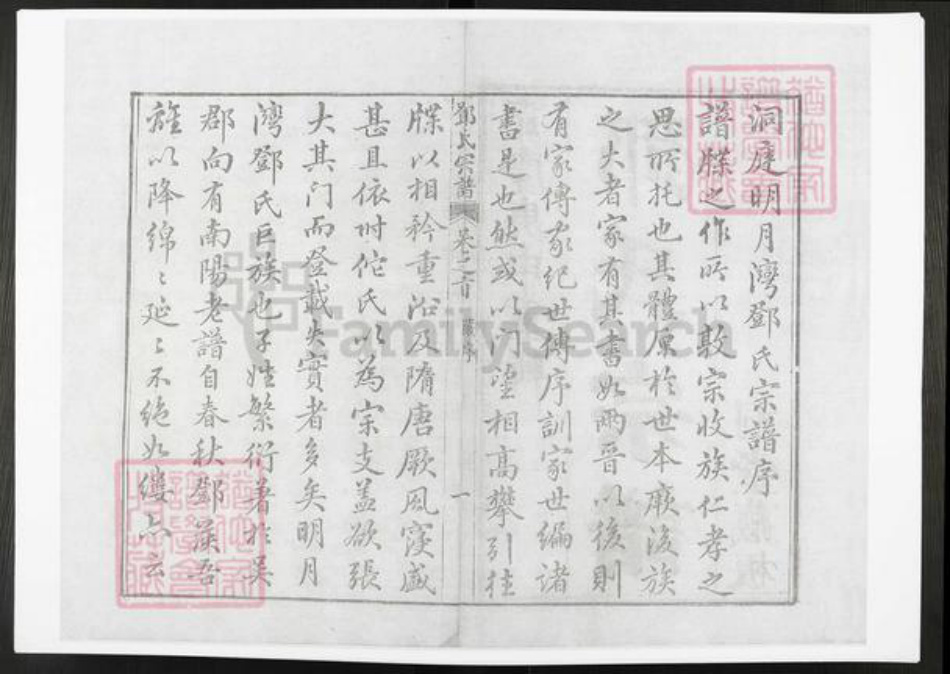 洞庭明月灣鄧氏宗譜序
譜牒之作所以敦宗收族仁孝之
思所托也其體原於世本厥後族
之大者家有其書如兩晋以後則
有家傳家紀世傳序訓家世編諸
書是也然或以门望相高攀引往
鄧氏宗譜 卷之首 序 一
牒以相矜重沿及隋唐厥风寖盛
甚且依附佗氏以為宗支盖欲張
大其门而登載失實者多矣明月
灣鄧氏巨族也子姓繁衍著於吴
郡向有南陽老譜自春秋鄧侯吾
離以降綿〻延〻不绝如缕亦云
FamilySearch